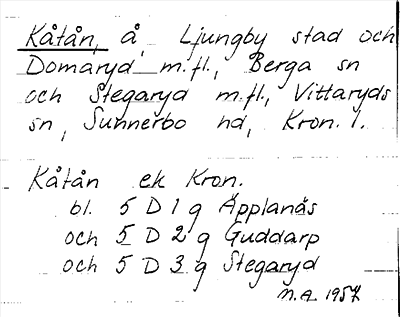 Kåtån, å, Ljungby stad och
Domaryd m.fl., Berga sn
och Stegaryd m.fl., Vittaryds
sn, Sunnerbo hd, Kron. l.
Kåtån ek Kron.
bl. 5 D 1 g Äpplanäs
och 5 D 2 g Guddarp
och 5 D 3 g Stegaryd
M.A. 1957